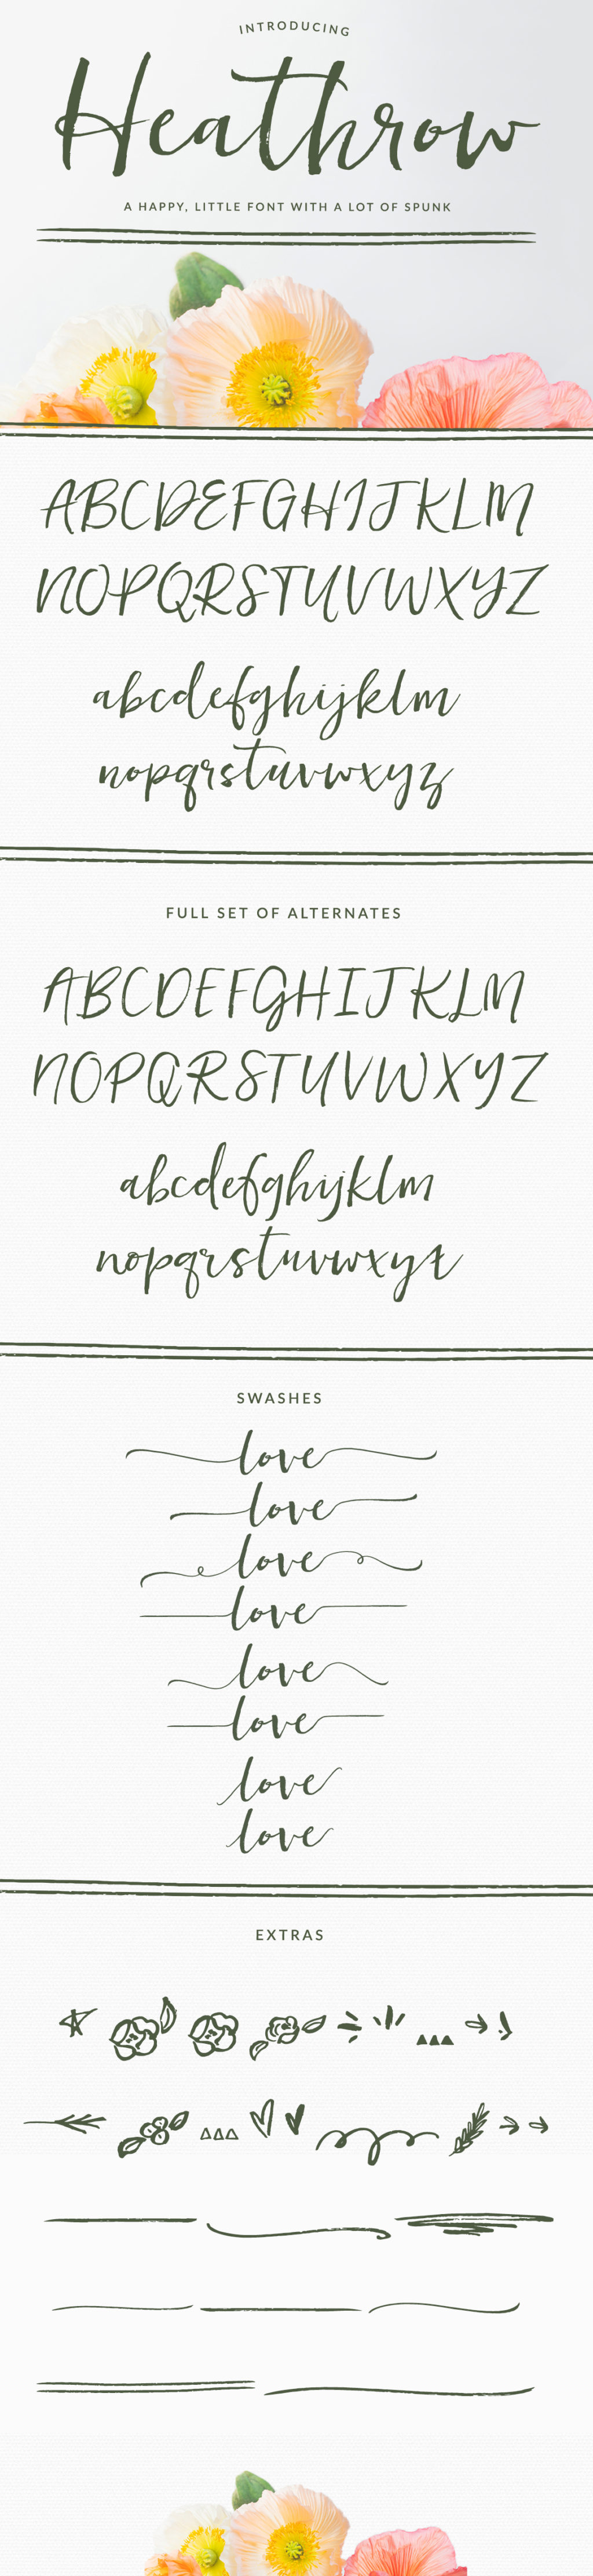 INTRODUCING
Heathrow
A HAPPY, LITTLE FONT WITH A LOT OF SPUNK
ABCDEFGHIJKLM
NOPQRSTUVWXYZ
abcdefghijklm
nopqrstuvwxyz
FULL SET OF ALTERNATES
ABCDEFGHIJKLM
NOPQRSTUVWXYZ
abcdefghijklm
nopqrstuvwxyz
SWASHES
love
love
love
love
love
love
love
love
EXTRAS